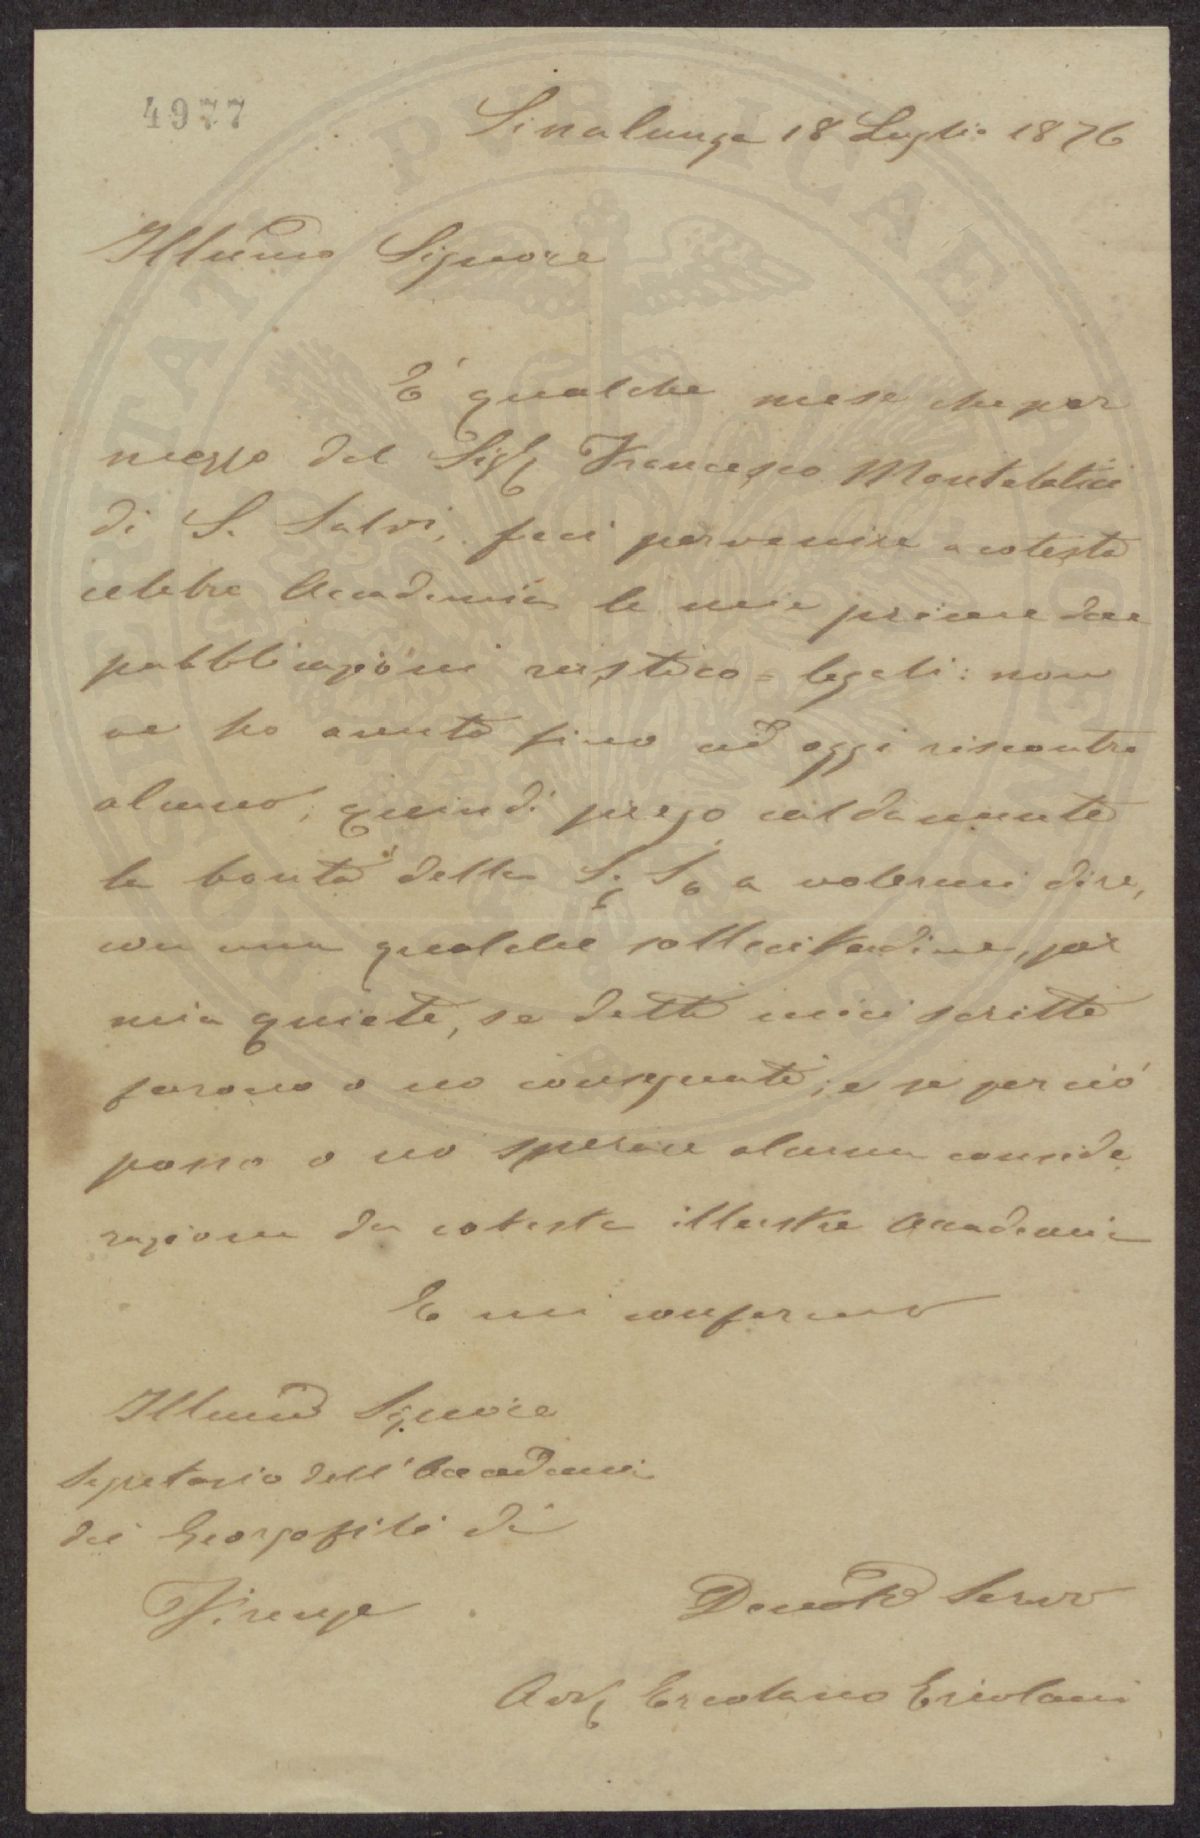 4977
Sinalunga 18 Luglio 1876
Illumo Signore
E' qualche mese che per
mezzo del Sigr Francesco Montelatici
di S. Salvi, feci pervenire a cotesta
celebre Accademia le mie prime due
pubblicazioni rustico=legali: non
ne ho avuto fino ad oggi riscontro
alcuno; quindi prego caldamente
la bontà della S. Sa a volermi dire,
con una qualche sollecitudine, per
mia quiete, se detti miei scritti
furono o no consegnati; e se per ciò
posso o no sperare alcuna conside
razione da cotesta illustre Accademia
E mi confermo
Illumo Signore
Segretario dell'Accademia
dei Georgofili di
Firenze
Devoto Servo
Avv Ercolano Ercolani